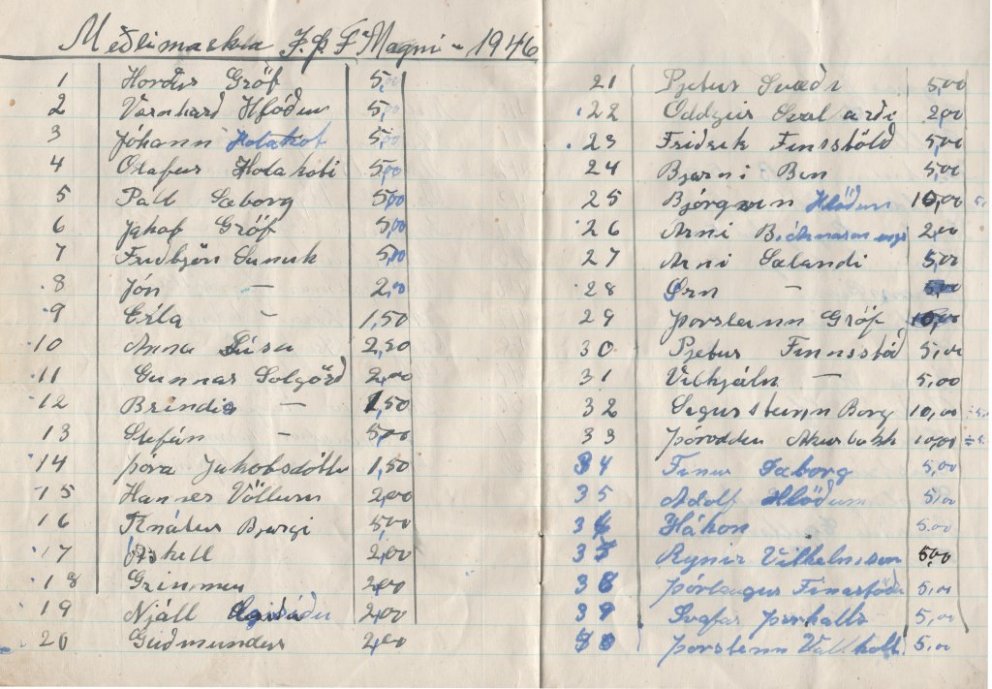 Meðlimaskra J.þ.F. Magni - 1946
1 Hördur Gröf 5,00
2 Vernhard Hlöðum 5,00
3 Jóhann Holakot 5,00
4 Olafur Holakoti 5,00
5 Páll Saborg 5,00
6 Jakop Gröf 5,00
7 Fridbjörn 5,00
8 Jón — 2,00
9 Erla — 1,50
10 Anna Lísa 2,50
11 Gunnar Solgörð 2,00
12 Brindis — 1,50
13 Stefán — 5,00
14 Þóra Jakobsdóttir 1,50
15 Hannes Völlum 2,00
16 Knútur Bjargi 5,00
17 Áskell 2,00
18 Grimmur 2,00
19 Njáll 2,00
20 Guðmundur 2,00
21 Pjetur Svæði 5,00
22 Oddgeir 2,00
23 Friðrik Finsstöð 5,00
24 Bjarni Ben 5,00
25 Björgvin Hlöðum 10,00
26 Arni 2,00
27 Arni Salandi 5,00
28 Örn — 5,00
29 Þorsteinn Gröf 10,00
30 Pjetur Finnsstöð 5,00
31 Vilhjálm — 5,00
32 Sigursteinn Borg 10,00
33 Þóroddur 10,00
34 Finnur Saborg 5,00
35 Adolf Hlöðum 5,00
36 Hákon 5,00
37 Rynir Vilhelmsson 5,00
38 Þórlaugur Finastöðu 5,00
39 Svafar Þorhalls 5,00
40 Þorsteinn Vallholt 5,00